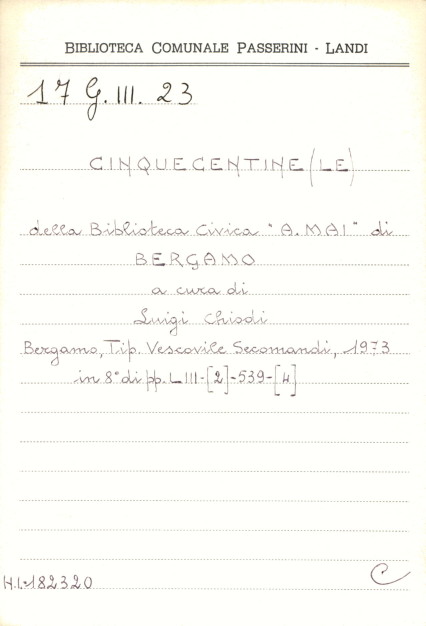 BIBLIOTECA COMUNALE PASSERINI - LANDI
17 G. III. 23
CINQUECENTINE (LE)
della Biblioteca Civica "A. MAI" di
BERGAMO
a cura di
Luigi Chiodi
Bergamo, Tip. Vescovile Secomandi, 1973
in 8° di pp. LIII-[2]-539-[4]
H.L.182320
C